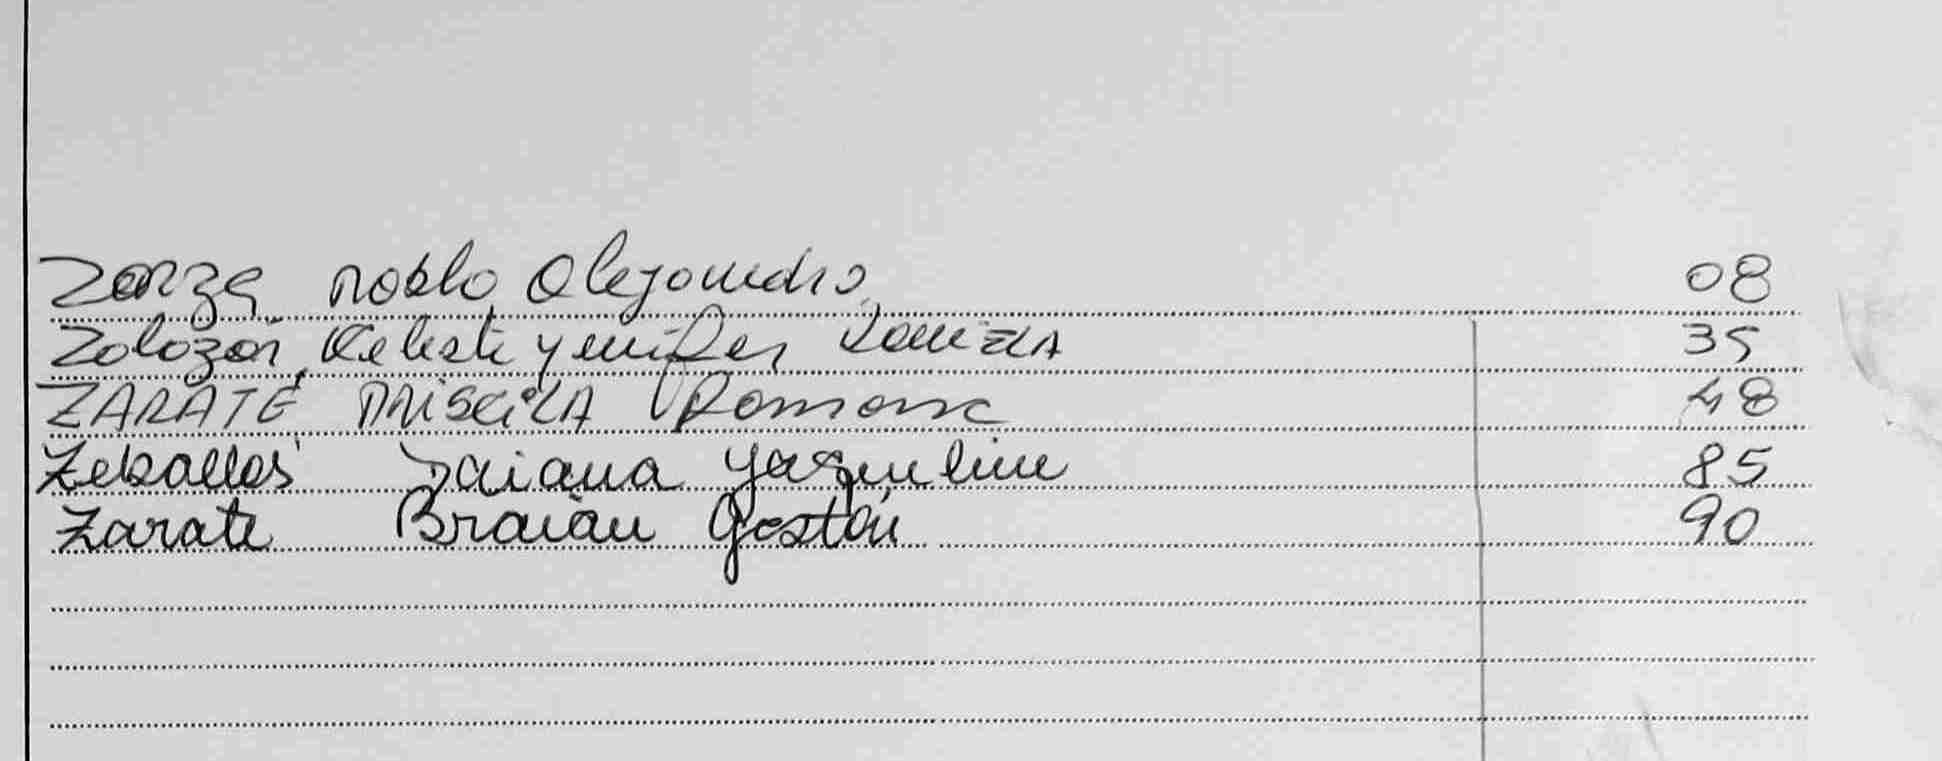 Zarza Pablo Alejandro 08
Zalazar, Celeste Yenifer Daniela 35
ZARATE PRISCILA Romana 48
Zeballos Daiana Yaqueline 85
Zarate Braian Gastón 90